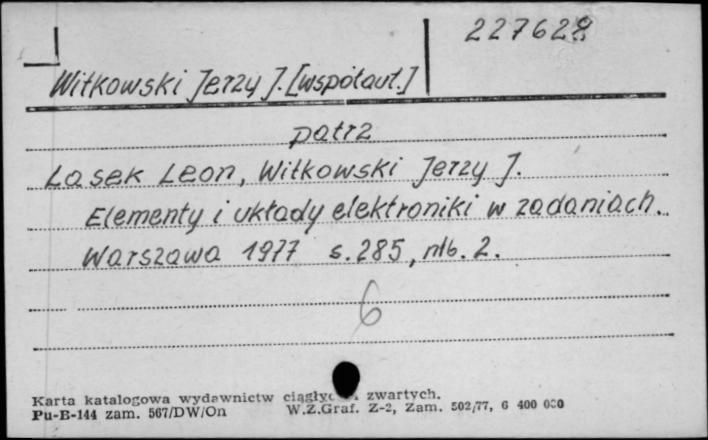 227628
Witkowski Jerzy J. [współaut.]
patrz
Lasek Leon, Witkowski Jerzy J.
Elementy i układy elektroniki w zadaniach.
Warszawa 1977 s. 285, nlb. 2.
6
Karta katalogowa wydawnictw zwartych.
Pu-B-144 zam. 567/DW/On W.Z.Graf. Z-2, Zam. 502/77, 6 400 000